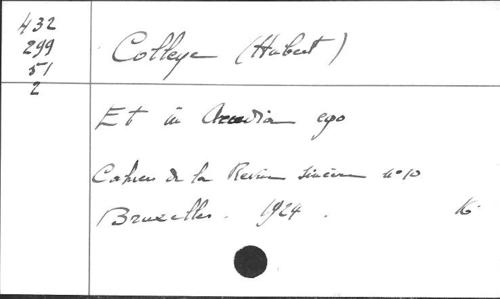 432
299
51
2
Colleye (Hubert)
Et in Arcadia ego
Cahiers de la Revue sincère n° 10
Bruxelles. 1924.